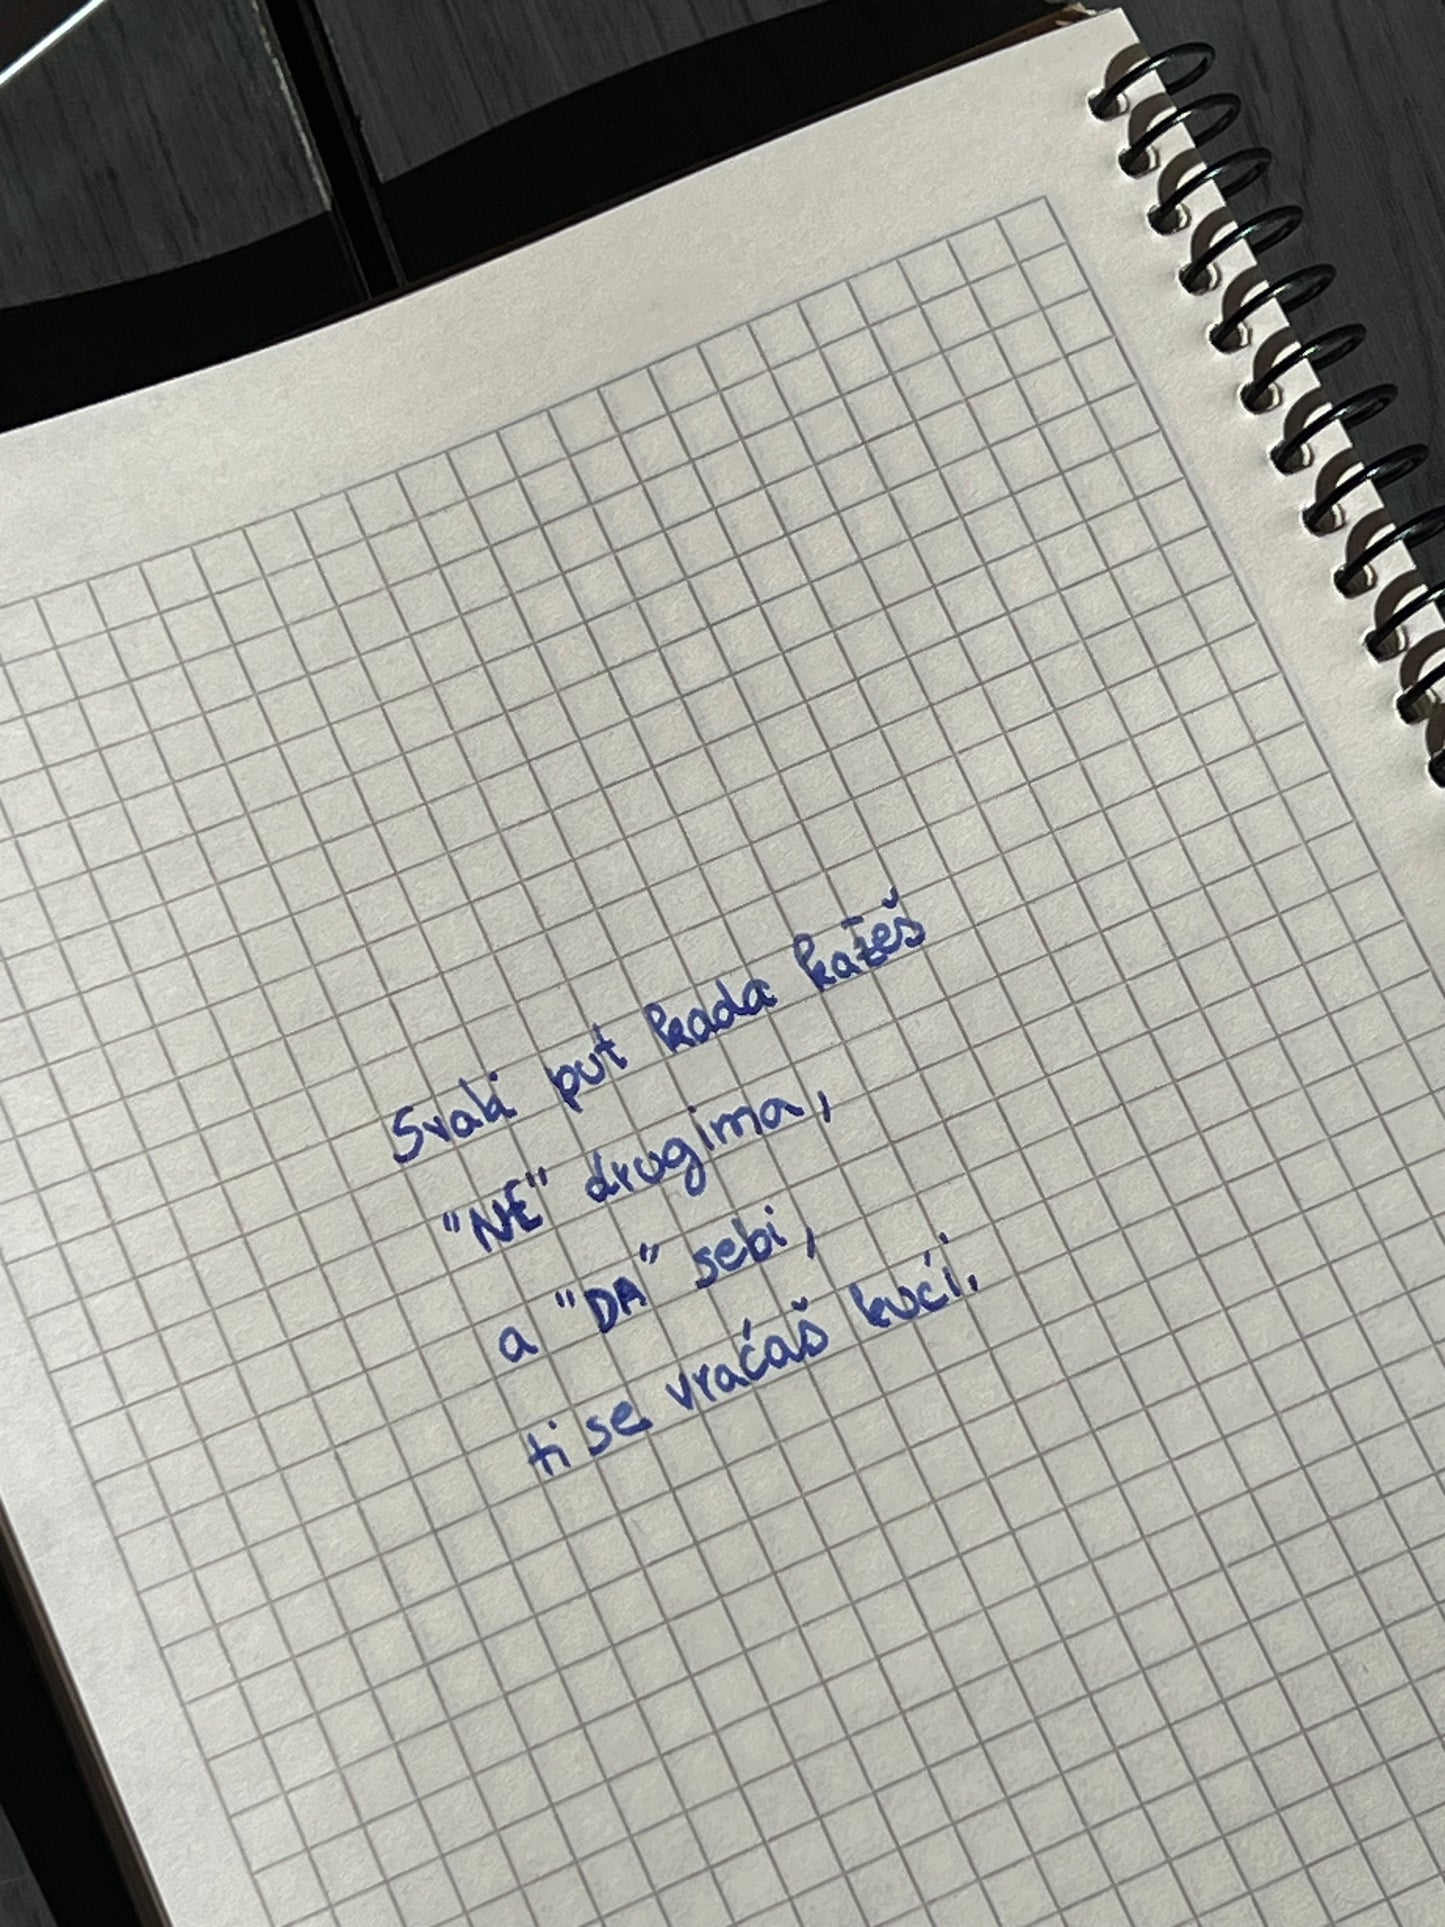 Svaki put kada kažeš
"NE" drugima,
a "DA" sebi,
ti se vraćaš kući.